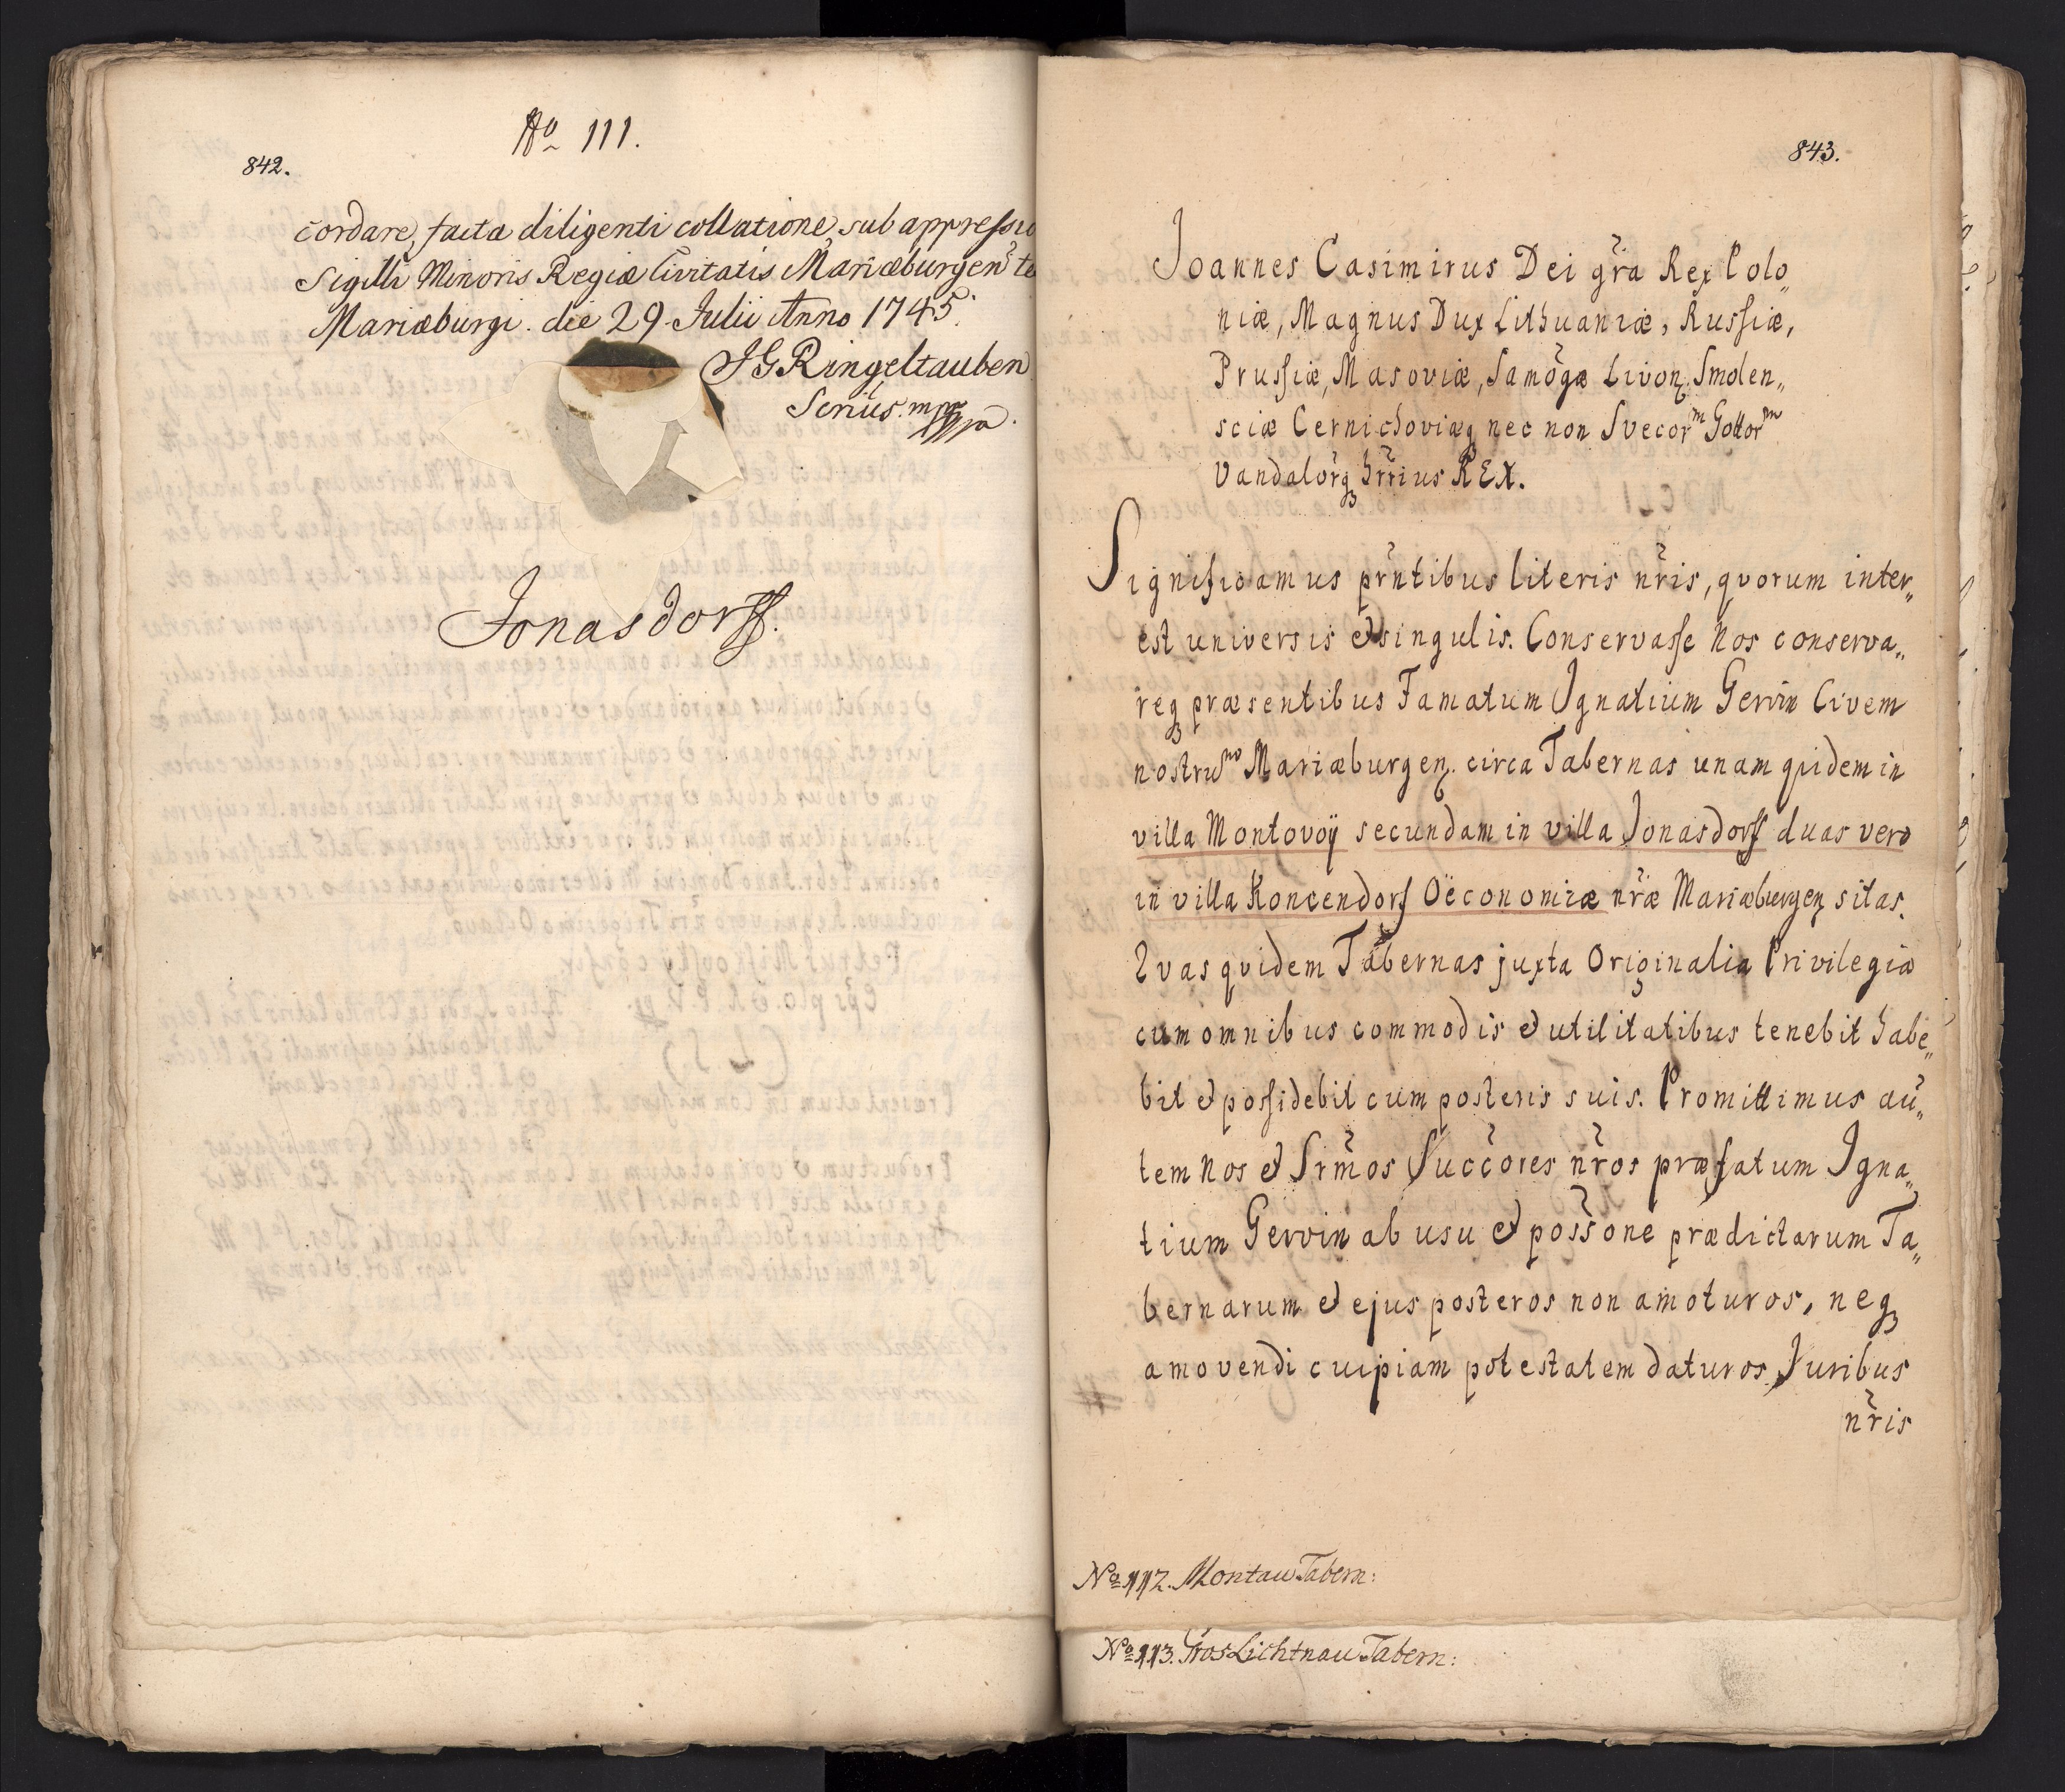 No 111.
842.
cordare, facta diligenti collatione, sub appressio
Sigilli Minoris Regiæ Civitatis Mariæburgen̄ te
Mariæburgi. die 29. Julii Anno 1745.
JG Ringeltauben
Scriūs. mppa.
Jonasdorff.
843.
Joannes Casimirus Dei gr̃a Rex Polo„
niæ, Magnus Dux Lithuaniæ, Russiæ,
Prussiæ, Masoviæ, Samog̃æ Livon. Smolen„
sciæ Cernichoviæq nec non Svecorᵐ Gottorᵐ
Vandalor̃q hr̃rius REX.
Significamus pr̃ntibus literis nr̃is, qvorum inter„
est universis et singulis. Conservasse Nos conserva„
req præsentibus Famatum Ignatium Gervin Civem
nostruᵐ Mariæburgen. circa Tabernas unam qvidem in
villa Montovoÿ secundam in villa Jonasdorff duas vero
in villa Koncendorf Oëconomiæ nr̃æ Mariæburgen sitas.
Qvas qvidem Tabernas juxta Originalia Privilegia
cum omnibus commodis et utilitatibus tenebit habe„
bit et possidebit cum posteris suis. Promittimus au„
tem Nos et Srm̃os Succ̃ores nr̃os præfatum Igna„
tium Gervin ab usu et poss̃one prædictarum Ta„
bernarum et ejus posteros non amoturos, neq
amovendi cuipiam potestatem daturos, Juribus
nr̃is
No 112. Montau Tabern:
No 113. Gros Lichtnau Tabern: